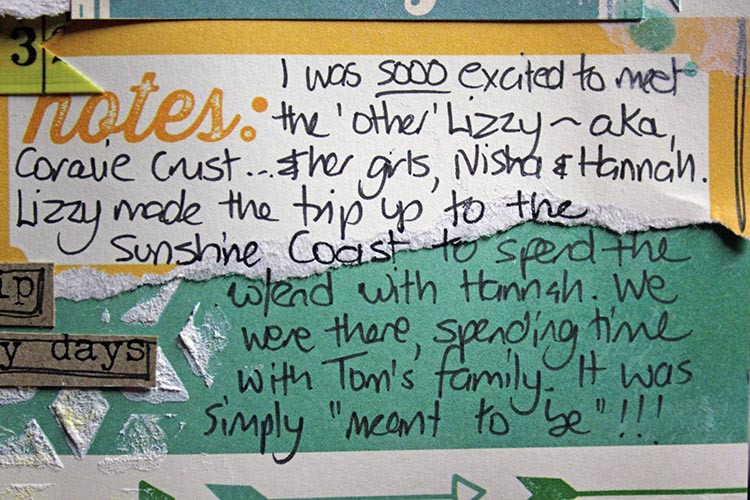 3
notes:
I was sooo excited to meet
the 'other' Lizzy ~ aka,
Coralie Crust... & her girls, Nisha & Hannah.
Lizzy made the trip up to the
Sunshine Coast to spend the
w/end with Hannah. We
were there, spending time
with Tom's family. It was
simply "meant to be"!!!
ip
y days